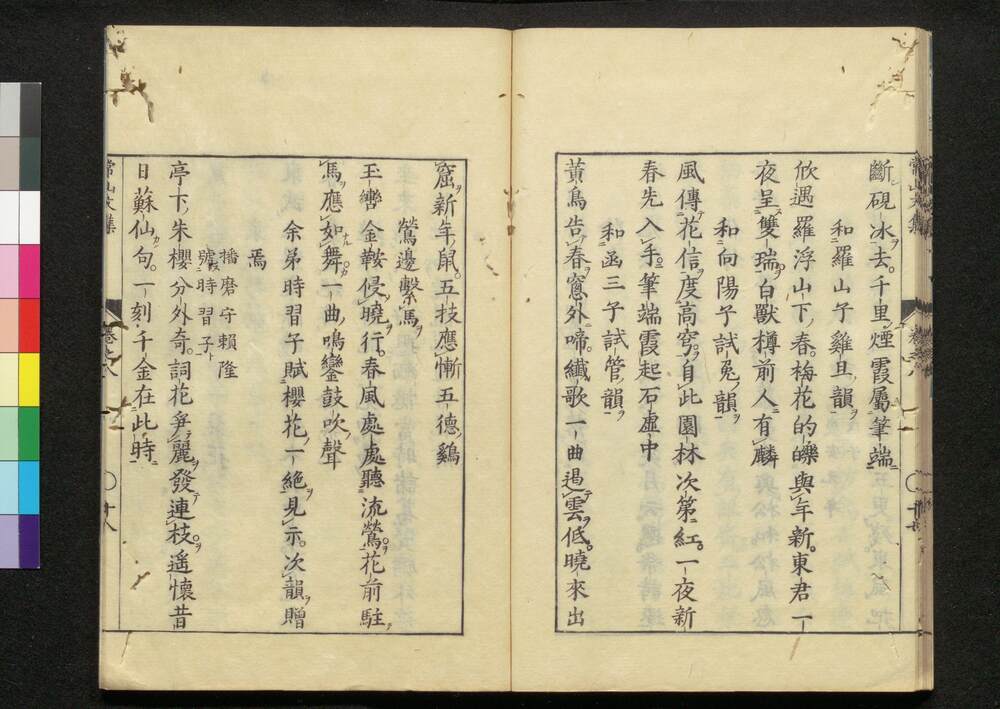 斷硯冰去千里煙霞屬筆端
和羅山子雞旦韻
欣遇羅浮山下春梅花的皪與年新東君一
夜呈雙瑞白獸樽前人有麟
和向陽子試兔韻
風傳花信度高穹自此園林次第紅一夜新
春先入手筆端霞起石虛中
和函三子試管韻
黃鳥告春窓外啼纖歌一曲遏雲低曉來出
窟新年鼠五技應慚五德鷄
鶯邊繫馬
玉轡金鞍侵曉行春風處處聽流鶯花前駐
馬應如舞一曲鳴鑾鼓吹聲
余弟時習子賦櫻花一絕見示次韻贈
焉
播磨守賴隆
號時習子
亭下朱櫻分外奇詞花爭麗發連枝遙懷昔
日蘇仙句一刻千金在此時
常山文集